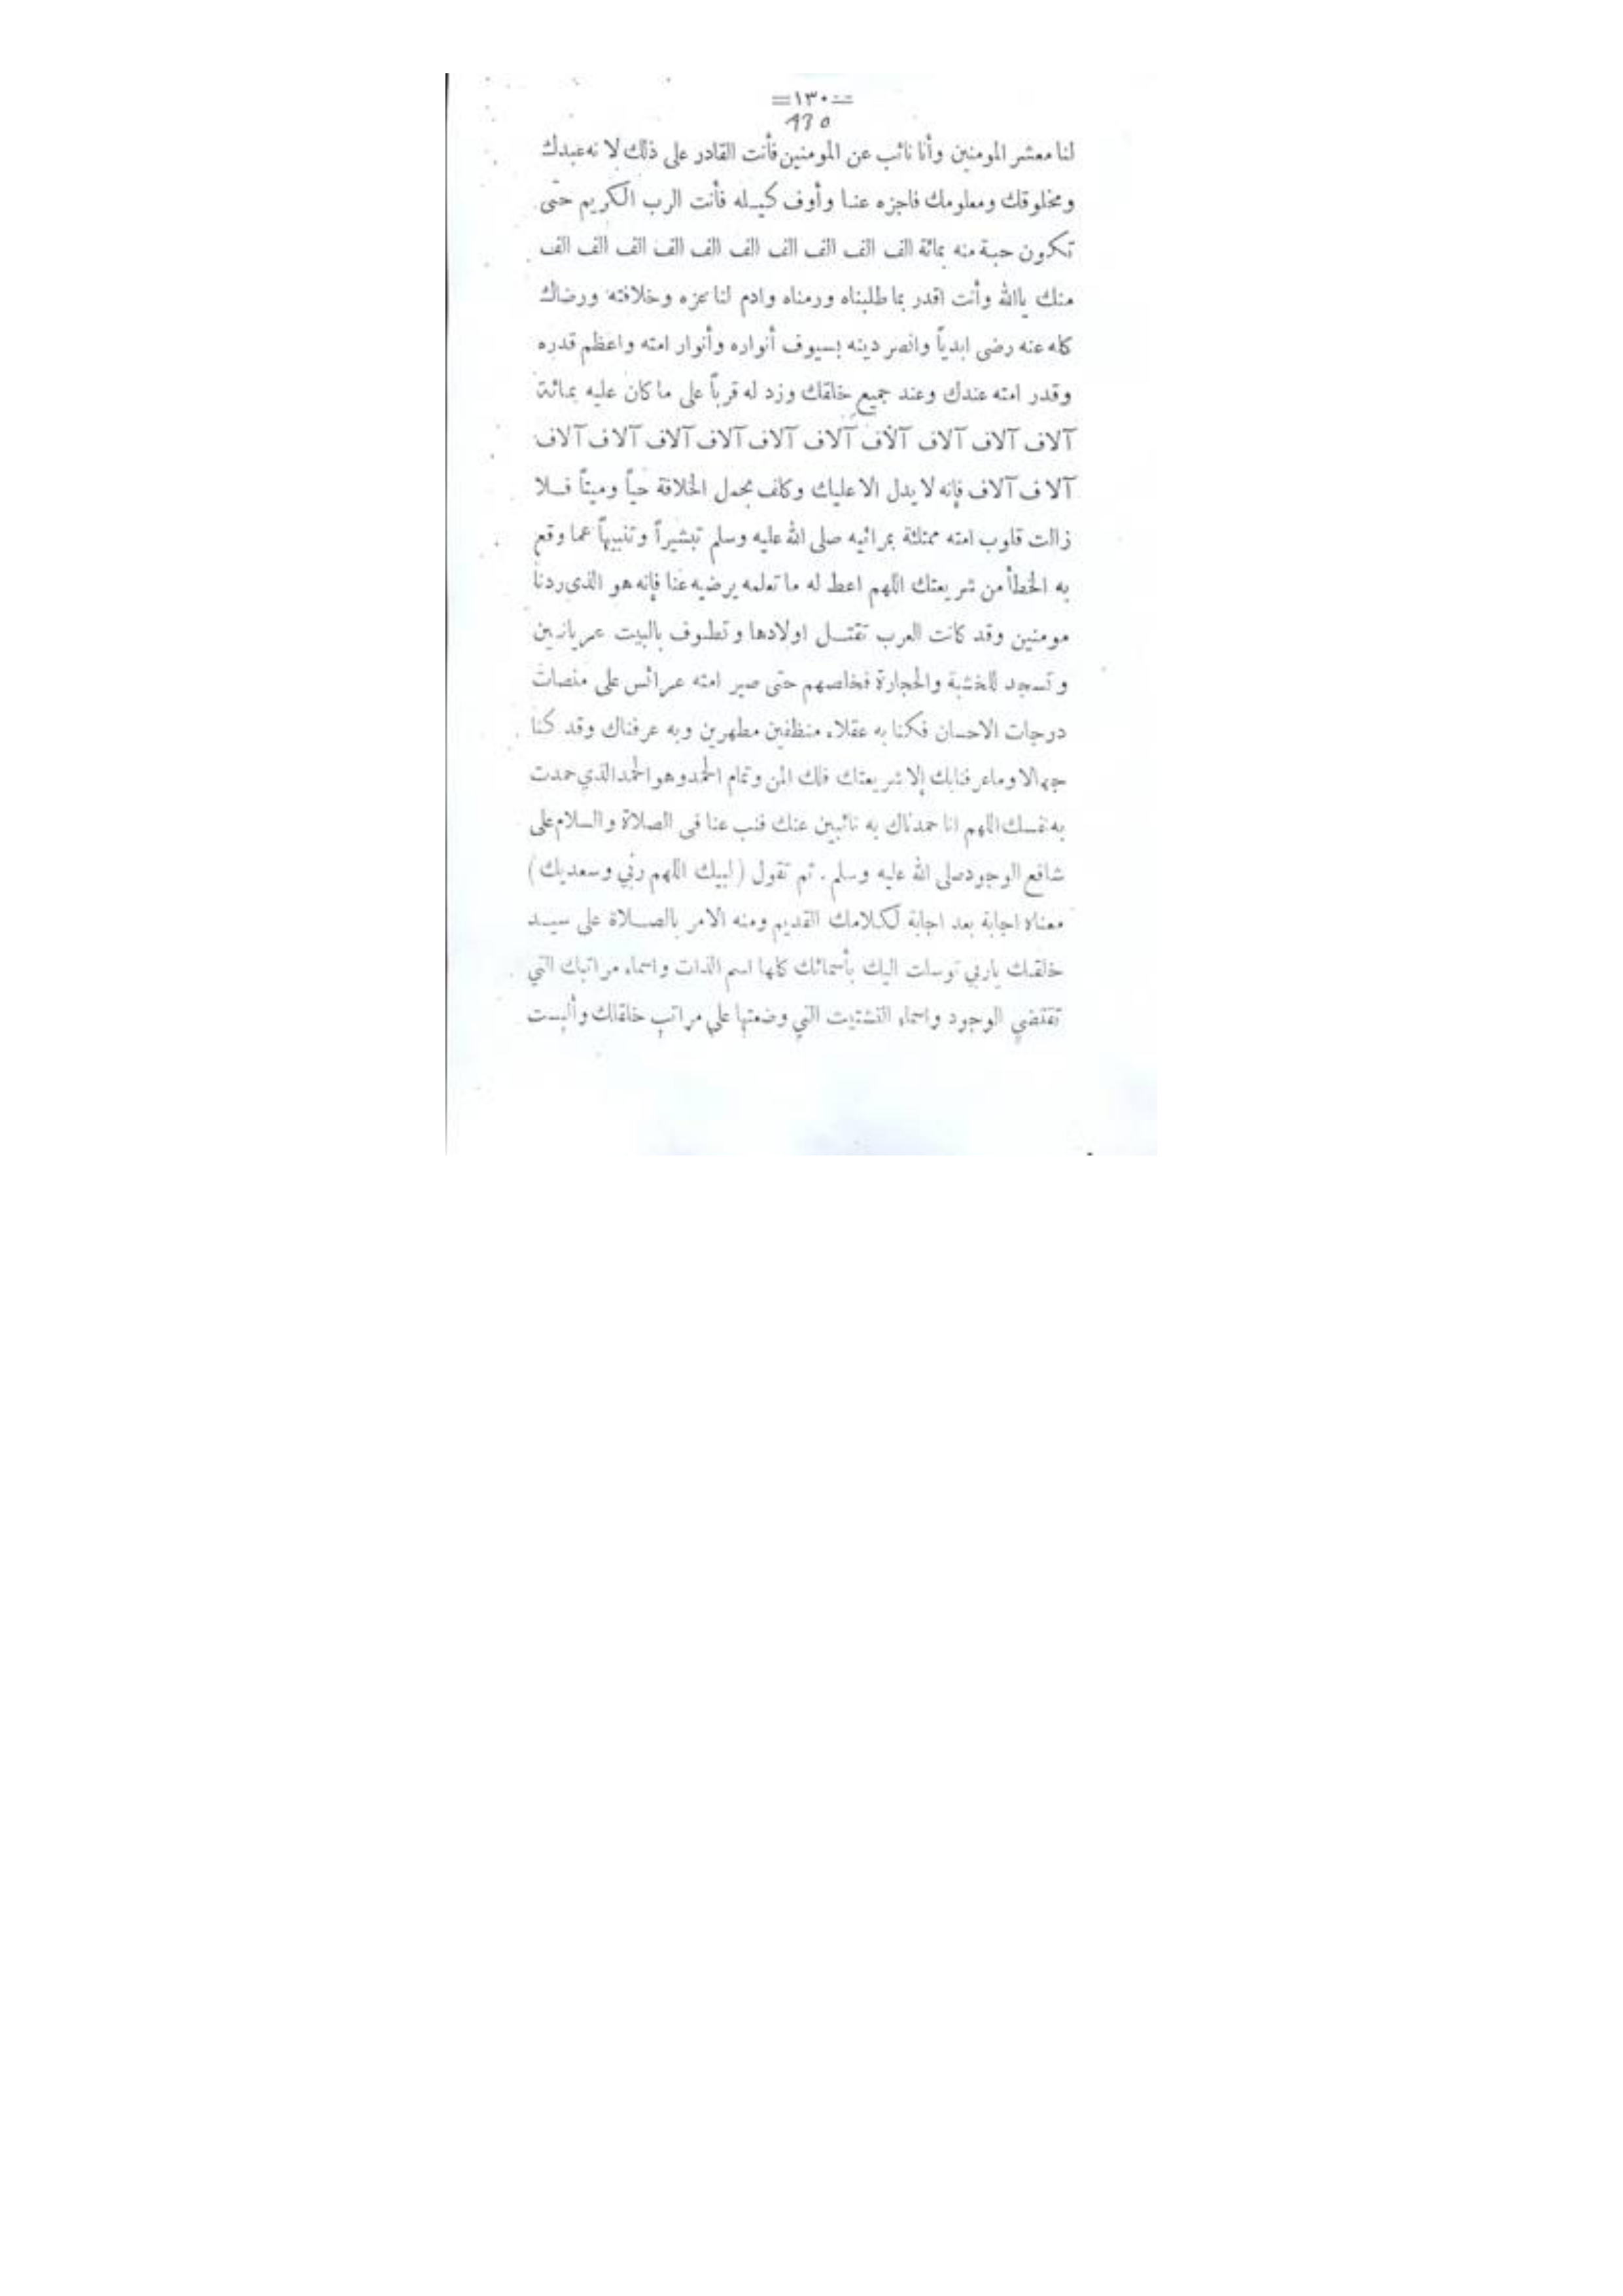 =١٣٠=
130
لنا معشر المومنين وأنا نائب عن المومنين فأنت القادر على ذلك لا نه عبدك
ومخلوقك ومعلومك فاجزه عنا وأوف كيله فأنت الرب الكريم حتى
تكون حبة منه بمائة الف الف الف الف الف الف الف الف الف الف
منك ياالله وأنت اقدر بما طلبناه ورمناه وادم لنا عزه وخلافته ورضاك
كله عنه رضى ابدياً وانصر دينه بسيوف أنواره وأنوار امته واعظم قدره
وقدر امته عندك وعند جميع خلقك وزد له قرباً على ما كان عليه بمائة
آلاف آلاف آلاف آلاف آلاف آلاف آلاف آلاف آلاف آلاف
آلاف آلاف فإنه لا يدل الا عليك وكلف بحمل الخلافة حياً وميتاً فلا
زالت قلوب امته ممتلئة بمرائيه صلى الله عليه وسلم تبشيراً وتنبيهاً عما وقع
به الخطأ من شريعتك اللهم اعط له ما تعلمه يرضيه عنا فإنه هو الذى ردنا
مومنين وقد كانت العرب تقتل اولادها وتطوف بالبيت عريانين
وتسجد للخشبة والحجارة فخلصهم حتى صير امته عرائس على منصات
درجات الاحسان فكنا به عقلاء منظفين مطهرين وبه عرفناك وقد كنا
جهالا وما عرفنا بك إلا شريعتك فلك المن وتمام الحمد وهو الحمد الذي حمدت
به نفسك اللهم انا حمدناك به نائبين عنك فنب عنا فى الصلاة والسلام على
شافع الوجود صلى الله عليه وسلم. ثم تقول (لبيك اللهم ربي وسعديك)
معناه اجابة بعد اجابة لكلامك القديم ومنه الامر بالصلاة على سيد
خلقك ياربي توسلت اليك بأسمائك كلها اسم الذات واسماء مراتبك التي
تقتضي الوجود واسماء التشتيت التي وضعتها على مراتب خلقك وألبست